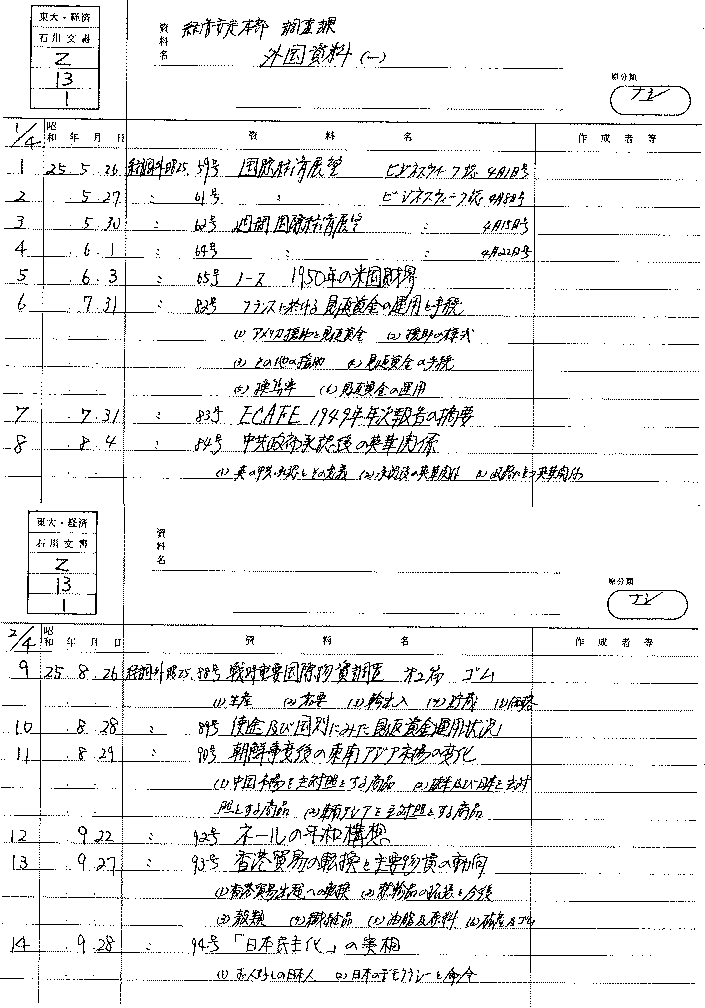 東大・経済
石川文書
Z
13
1
資料名 経済安定本部 調査課
外国資料(一)
原分類
ナシ
1/4 昭和 年 月 日 資料名 作成者等
1 25 5 26 経調外昭25. 59号 国際経済展望 ビジネスウィーク誌 4月1日号
2 5.27 〃 61号 〃 ビジネスウィーク誌 4月8日号
3 5 30 〃 62号 週間国際経済展望 〃 4月15日号
4 6.1 〃 64号 〃 〃 4月22日号
5 6.3 〃 65号 ノース 1950年の米国財界
6 7 31 〃 82号 フランスに於ける見返資金の運用と手続
(1) アメリカ援助と見返資金 (2) 援助の様式
(3) その他の援助 (4) 見返資金の手続
(5) 換算率 (6) 見返資金の運用
7 7.31 〃 83号 ECAFE 1949年年次報告の摘要
8 8.4 〃 84号 中共政府承認後の英華関係
(1) 英の中共承認とその意義 (2) 承認後の英華関係
東大・経済
石川文書
Z
13
1
資料名
原分類
ナシ
2/4 昭和 年 月 日 資料名 作成者等
9 25 8.26 経調外昭25. 88号 戦時重要国際物資調查 ゴム
(1) 生産 (2) 需要 (3) 輸出入 (4) 貯蔵 (5) 価格
10 8.28 〃 89号 使途及び国別にみた見返資金運用状況
11 8 29 〃 90号 朝鮮事変後の東南アジア市場の変化
(1) 中国市場を主対照とする商品 (2) 欧米及び日本を主対
照とする商品 (3) 東南アジアを主対照とする商品
12 9 22 〃 92号 ネールの平和構想
13 9.27 〃 93号 香港貿易の転換と主要物資の動向
(1) 香港貿易出超への転換 (2)
(3) 穀類 (4) 繊維品 (5) 油脂及原料 (6)
14 9.28 〃 94号 「日本民主化」の実相
(1) お人好しの日本人 (2) 日本のデモクラシーと命令